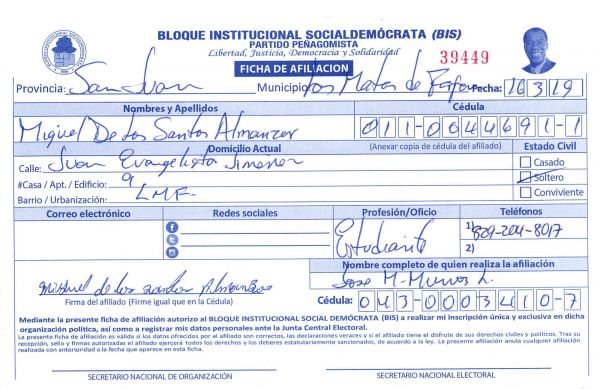 BLOQUE INSTITUCIONAL SOCIALDEMÓCRATA (BIS)
PARTIDO PEÑAGOMISTA
Libertad, Justicia, Democracia y Solidaridad
39449
FICHA DE AFILIACION
Provincia: San Juan Municipio: Las Matas de Farfan Fecha: 16/3/19
Nombres y Apellidos Cédula
Miguel De Los Santos Almanzar 011-0044691-1
Domicilio Actual (Anexar copia de cédula del afiliado) Estado Civil
Calle: Juan Evangelista Jimenez Casado
#Casa / Apt. / Edificio: 9 Soltero
Barrio / Urbanización: LMF. Conviviente
Correo electrónico Redes sociales Profesión/Oficio Teléfonos
Estudiante 1) 829-204-8017
2)
Nombre completo de quien realiza la afiliación
Miguel de los santos Almanzar Jose M. Muños L.
Firma del afiliado (Firme igual que en la Cédula) Cédula: 043-0003410-7
Mediante la presente ficha de afiliación autorizo al BLOQUE INSTITUCIONAL SOCIAL DEMÓCRATA (BIS) a realizar mi inscripción única y exclusiva en dicha
organización política, así como a registrar mis datos personales ante la Junta Central Electoral.
La presente ficha de afiliación es válida si los datos ofrecidos por el afiliado son correctos, las declaraciones veraces y si el afiliado tiene el disfrute de sus derechos civiles y políticos. Tras su
recepción, sello y firmas autorizadas el afiliado ejercerá todos los derechos y los deberes estatutariamente sancionados, de acuerdo a la ley. La presente afiliación anula cualquier afiliación
realizada con anterioridad a la fecha que aparece en esta ficha.
SECRETARIO NACIONAL DE ORGANIZACIÓN SECRETARIO NACIONAL ELECTORAL